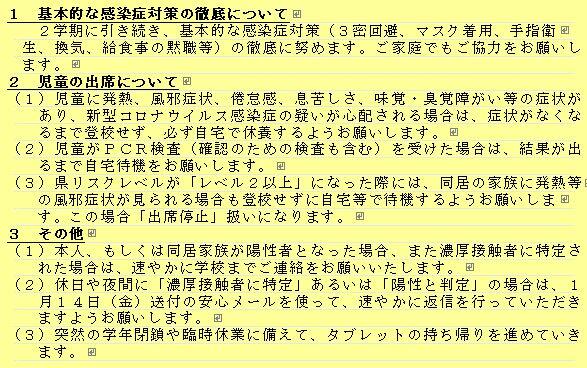 １　基本的な感染症対策の徹底について
２学期に引き続き、基本的な感染症対策（３密回避、マスク着用、手指衛
生、換気、給食事の黙職等）の徹底に努めます。ご家庭でもご協力をお願いし
ます。
２　児童の出席について
（１）児童に発熱、風邪症状、倦怠感、息苦しさ、味覚・臭覚障がい等の症状が
あり、新型コロナウイルス感染症の疑いが心配される場合は、症状がなくな
るまで登校せず、必ず自宅で休養するようお願いします。
（２）児童がＰＣＲ検査（確認のための検査も含む）を受けた場合は、結果が出
るまで自宅待機をお願いします。
（３）県リスクレベルが「レベル２以上」になった際には、同居の家族に発熱等
の風邪症状が見られる場合も登校せずに自宅等で待機するようお願いしま
す。この場合「出席停止」扱いになります。
３　その他
（１）本人、もしくは同居家族が陽性者となった場合、また濃厚接触者に特定さ
れた場合は、速やかに学校までご連絡をお願いいたします。
（２）休日や夜間に「濃厚接触者に特定」あるいは「陽性と判定」の場合は、１
月１４日（金）送付の安心メールを使って、速やかに返信を行っていただき
ますようお願いします。
（３）突然の学年閉鎖や臨時休業に備えて、タブレットの持ち帰りを進めていき
ます。